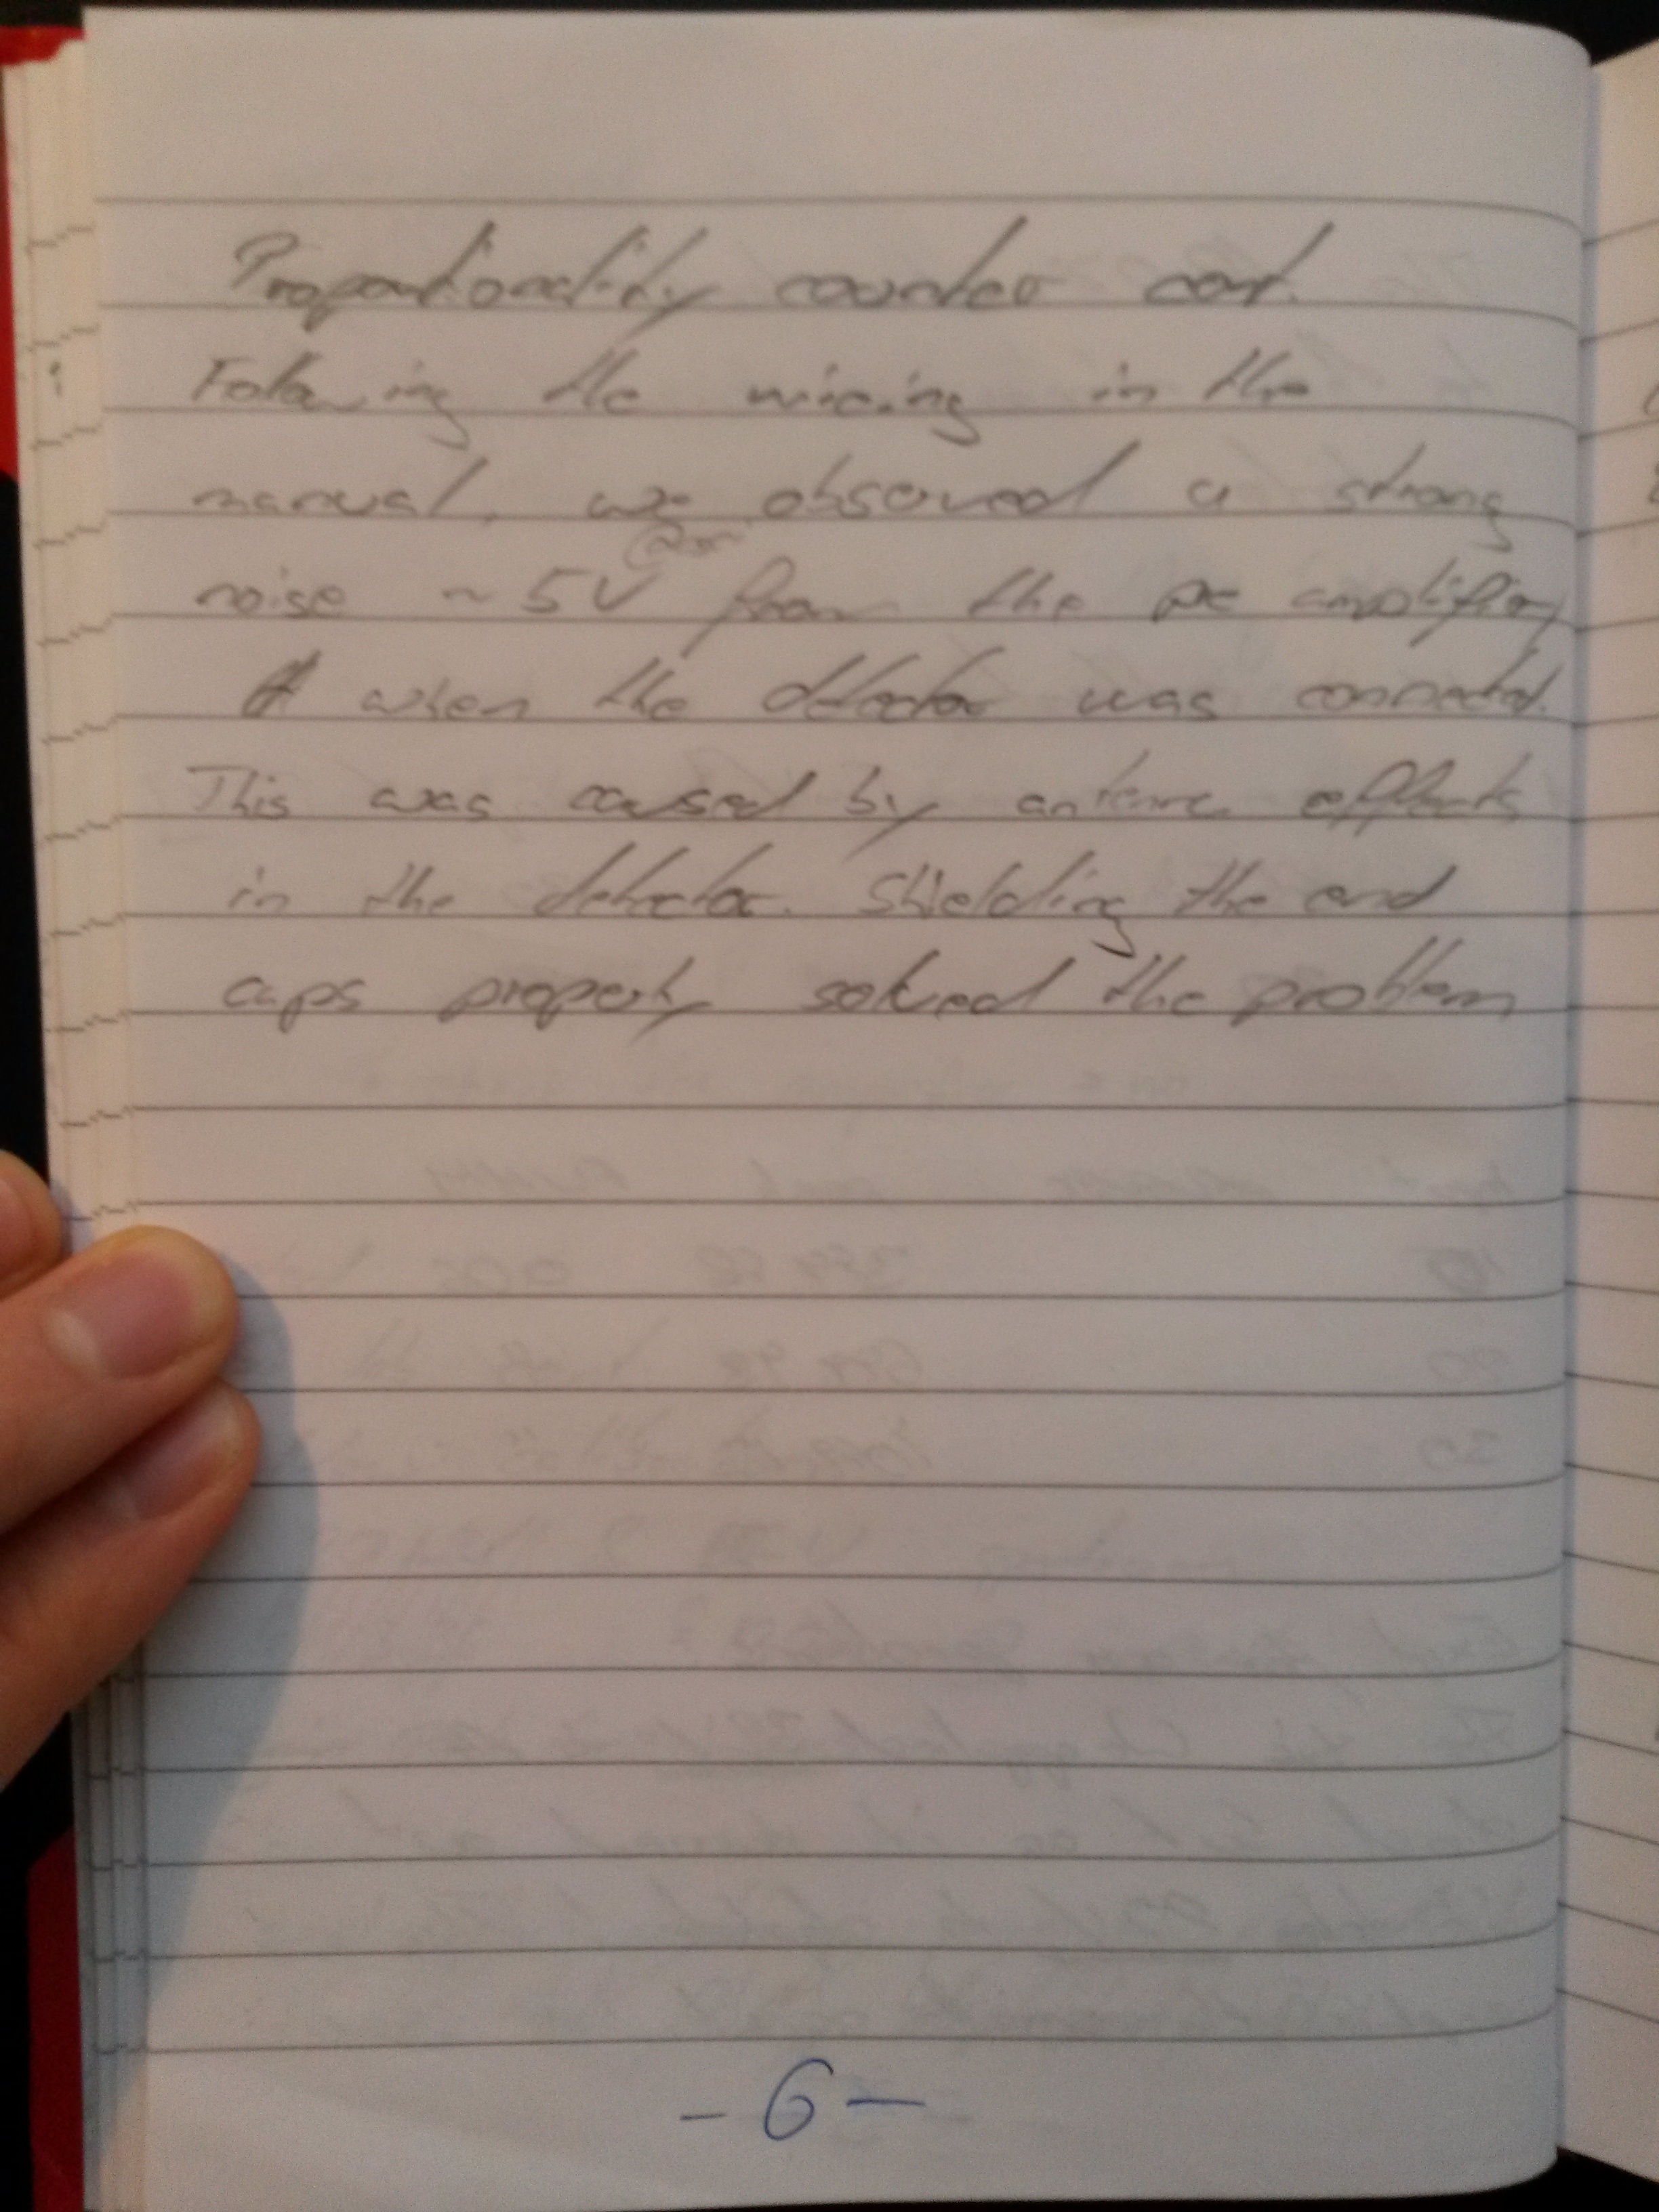 Proportionality counter cont.
Following the wiring in the
manual, we observed a strong
noise ~ 5V from the pre amplifier,
when the detector was connected.
This was caused by antenna effects
in the detector. Shielding the end
caps properly solved the problem
- 6 -